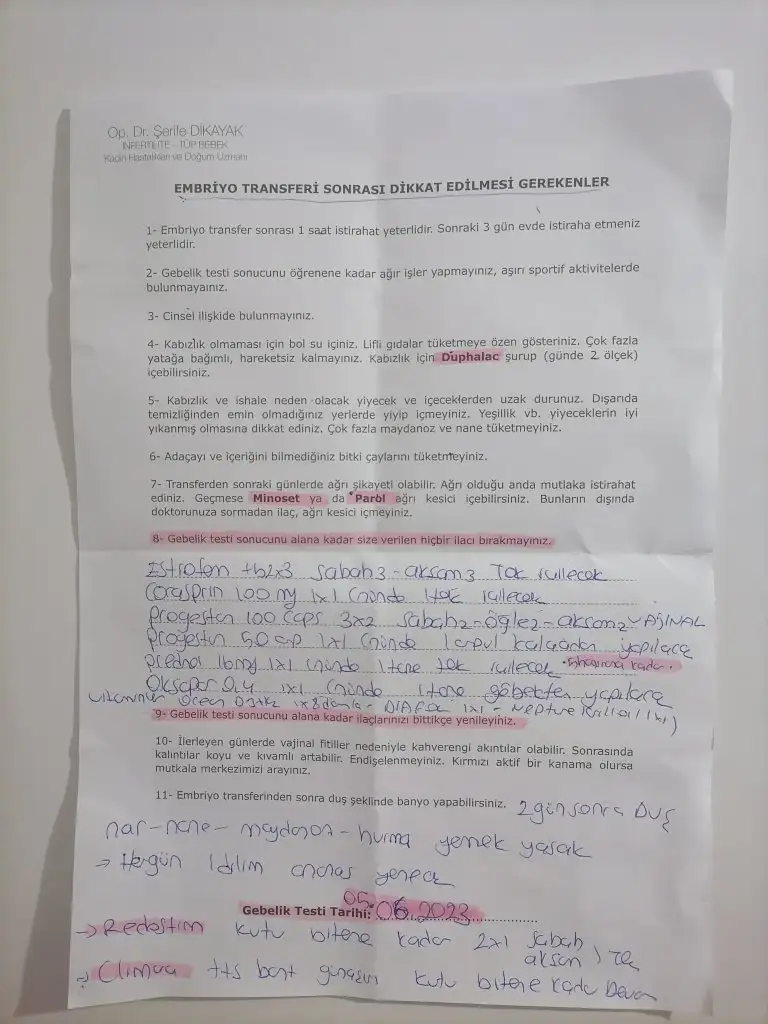 Op. Dr. Şerife DİKAYAK
İNFERTİLİTE - TÜP BEBEK
Kadın Hastalıkları ve Doğum Uzmanı
EMBRİYO TRANSFERİ SONRASI DİKKAT EDİLMESİ GEREKENLER
1- Embriyo transfer sonrası 1 saat istirahat yeterlidir. Sonraki 3 gün evde istiraha etmeniz
yeterlidir.
2- Gebelik testi sonucunu öğrenene kadar ağır işler yapmayınız, aşırı sportif aktivitelerde
bulunmayaınız.
3- Cinsel ilişkide bulunmayınız.
4- Kabızlık olmaması için bol su içiniz. Lifli gıdalar tüketmeye özen gösteriniz. Çok fazla
yatağa bağımlı, hareketsiz kalmayınız. Kabızlık için Duphalac şurup (günde 2 ölçek)
içebilirsiniz.
5- Kabızlık ve ishale neden olacak yiyecek ve içeceklerden uzak durunuz. Dışarıda
temizliğinden emin olmadığınız yerlerde yiyip içmeyiniz. Yeşillik vb. yiyeceklerin iyi
yıkanmış olmasına dikkat ediniz. Çok fazla maydanoz ve nane tüketmeyiniz.
6- Adaçayı ve içeriğini bilmediğiniz bitki çaylarını tüketmeyiniz.
7- Transferden sonraki günlerde ağrı şikayeti olabilir. Ağrı olduğu anda mutlaka istirahat
ediniz. Geçmese Minoset ya da Parol ağrı kesici içebilirsiniz. Bunların dışında
doktorunuza sormadan ilaç, ağrı kesici içmeyiniz.
8- Gebelik testi sonucunu alana kadar size verilen hiçbir ilacı bırakmayınız.
Estrofem tb2x3 sabah3-akşam3 Tok içilecek
Corasprin 100 mg 1x1 Günde 1tok içilecek
Progestan 100 caps 3x2 sabah2-öğle2-akşam2 VAJİNAL
Progestin 50 1x1 Günde 1 ampul kalçadan yapılaca
Prednol 16mg 1x1 Günde 1tane tok içilecek kadar.
Oksapar 0,4 1x1 Günde 1tane göbekten yapılaca
vitaminler Ocean D3+K2 1x8damla - 1x1 - Neptune Krilloil 1x1)
9- Gebelik testi sonucunu alana kadar ilaçlarınızı bittikçe yenileyiniz.
10- İlerleyen günlerde vajinal fitiller nedeniyle kahverengi akıntılar olabilir. Sonrasında
kalıntılar koyu ve kıvamlı artabilir. Endişelenmeyiniz. Kırmızı aktif bir kanama olursa
mutkala merkezimizi arayınız.
11- Embriyo transferinden sonra duş şeklinde banyo yapabilirsiniz. 2 gün sonra Duş
nar-nane-maydanoz-hurma yemek yasak
→ Hergün 1 dilim ananas yenecek
Gebelik Testi Tarihi: 05.06.2023
→ Redostim kutu bitene kadar 2x1 sabah
akşam) tok
→ Climara tts bant kutu bitene kadar Devam